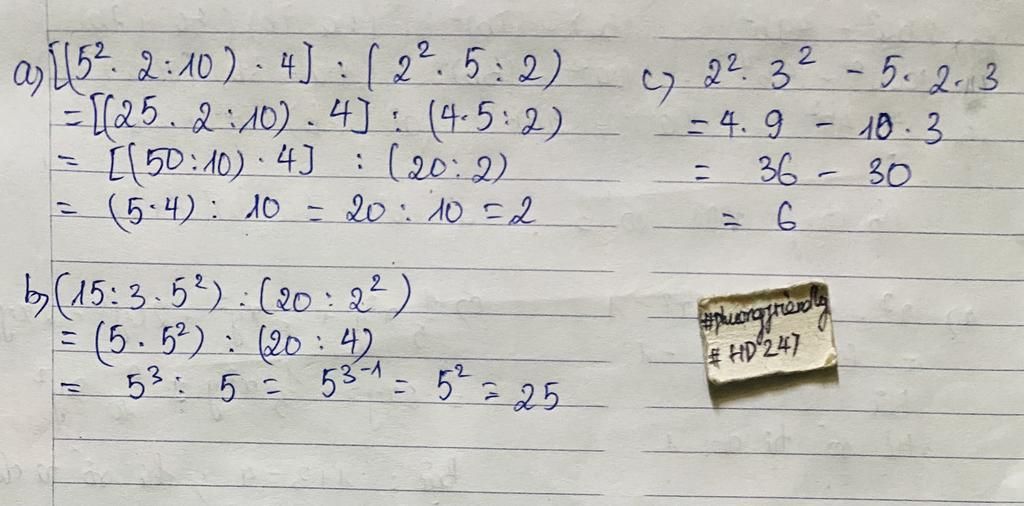 a) [(5². 2:10) . 4] : (2². 5 : 2)
= [(25 . 2 : 10) . 4] : (4.5 : 2)
= [(50:10) . 4] : (20:2)
= (5.4) : 10 = 20 : 10 = 2
b) (15:3.5²) : (20 : 2²)
= (5.5²) : (20 : 4)
= 5³ : 5 = 5³⁻¹ = 5² = 25
c) 2². 3² - 5.2.3
= 4.9 - 10.3
= 36 - 30
= 6
#phuongfriendly
# HD 247